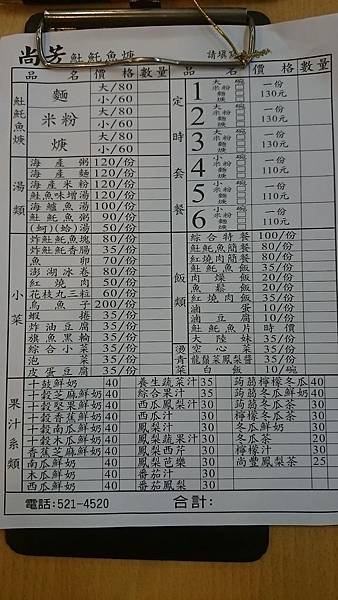 尚芳 魠魠魚焿 請填寫
品名 價格 數量 品名 價格
魠魠魚焿
麵 大/80
小/60
米粉 大/80
小/60
焿 大/80
小/60
湯類
海產粥 120/份
海產麵 120/份
海產米粉 120/份
魠魚味增湯 120/份
海鱸魚湯 100/份
魠魠魚粥 90/份
(蚵)(蛤)湯 50/份
小菜
炸魠魠魚塊 80/份
炸魠魠香腸 35/份
魚卵 70/份
澎湖冰卷 80/份
紅燒肉 50/份
花枝丸三粒 60/份
烏魚子 200/份
蝦捲 35/份
炸油豆腐 35/份
旗魚黑輪 35/份
綜合小菜 35/份
泡菜 35/份
皮蛋豆腐 35/份
定時套餐
1 大碗 米粉 麵 焿 一份 130元
2 大碗 米粉 麵 焿 一份 130元
3 大碗 米粉 麵 焿 一份 130元
4 小碗 米粉 麵 焿 一份 110元
5 小碗 米粉 麵 焿 一份 110元
6 小碗 米粉 麵 焿 一份 110元
飯類
綜合特餐 100/份
魠魠魚簡餐 80/份
紅燒肉簡餐 80/份
魠魠魚飯 35/份
肉燥飯 20/份
魚鬆飯 20/份
紅燒肉飯 35/份
滷蛋 10/份
滷豆腐 10/份
魠魠魚片 時價
大陸妹 35/份
空心菜 35/份
龍鬚菜鳳梨醬 35/份
白飯 10/碗
燙青菜
果汁系類
十穀鮮奶 40
十穀芝麻鮮奶 40
十穀堅果鮮奶 40
十穀香蕉鮮奶 40
十穀南瓜鮮奶 40
十穀木瓜鮮奶 40
香蕉芝麻鮮奶 40
南瓜鮮奶 40
木瓜鮮奶 40
西瓜鮮奶 40
養生蔬菜汁 35
綜合果汁 35
西瓜鳳梨汁 30
西瓜汁 30
鳳梨汁 30
鳳梨蔬果汁 30
鳳梨西芹 30
鳳梨芭樂 30
番茄汁 30
番茄鳳梨 30
蒟蒻檸檬冬瓜 40
蒟蒻冬瓜鮮奶 40
蒟蒻冬瓜茶 30
檸檬冬瓜茶 30
冬瓜鮮奶 30
冬瓜茶 20
檸檬汁 30
尚豐鳳梨茶 25
電話:521-4520 合計: